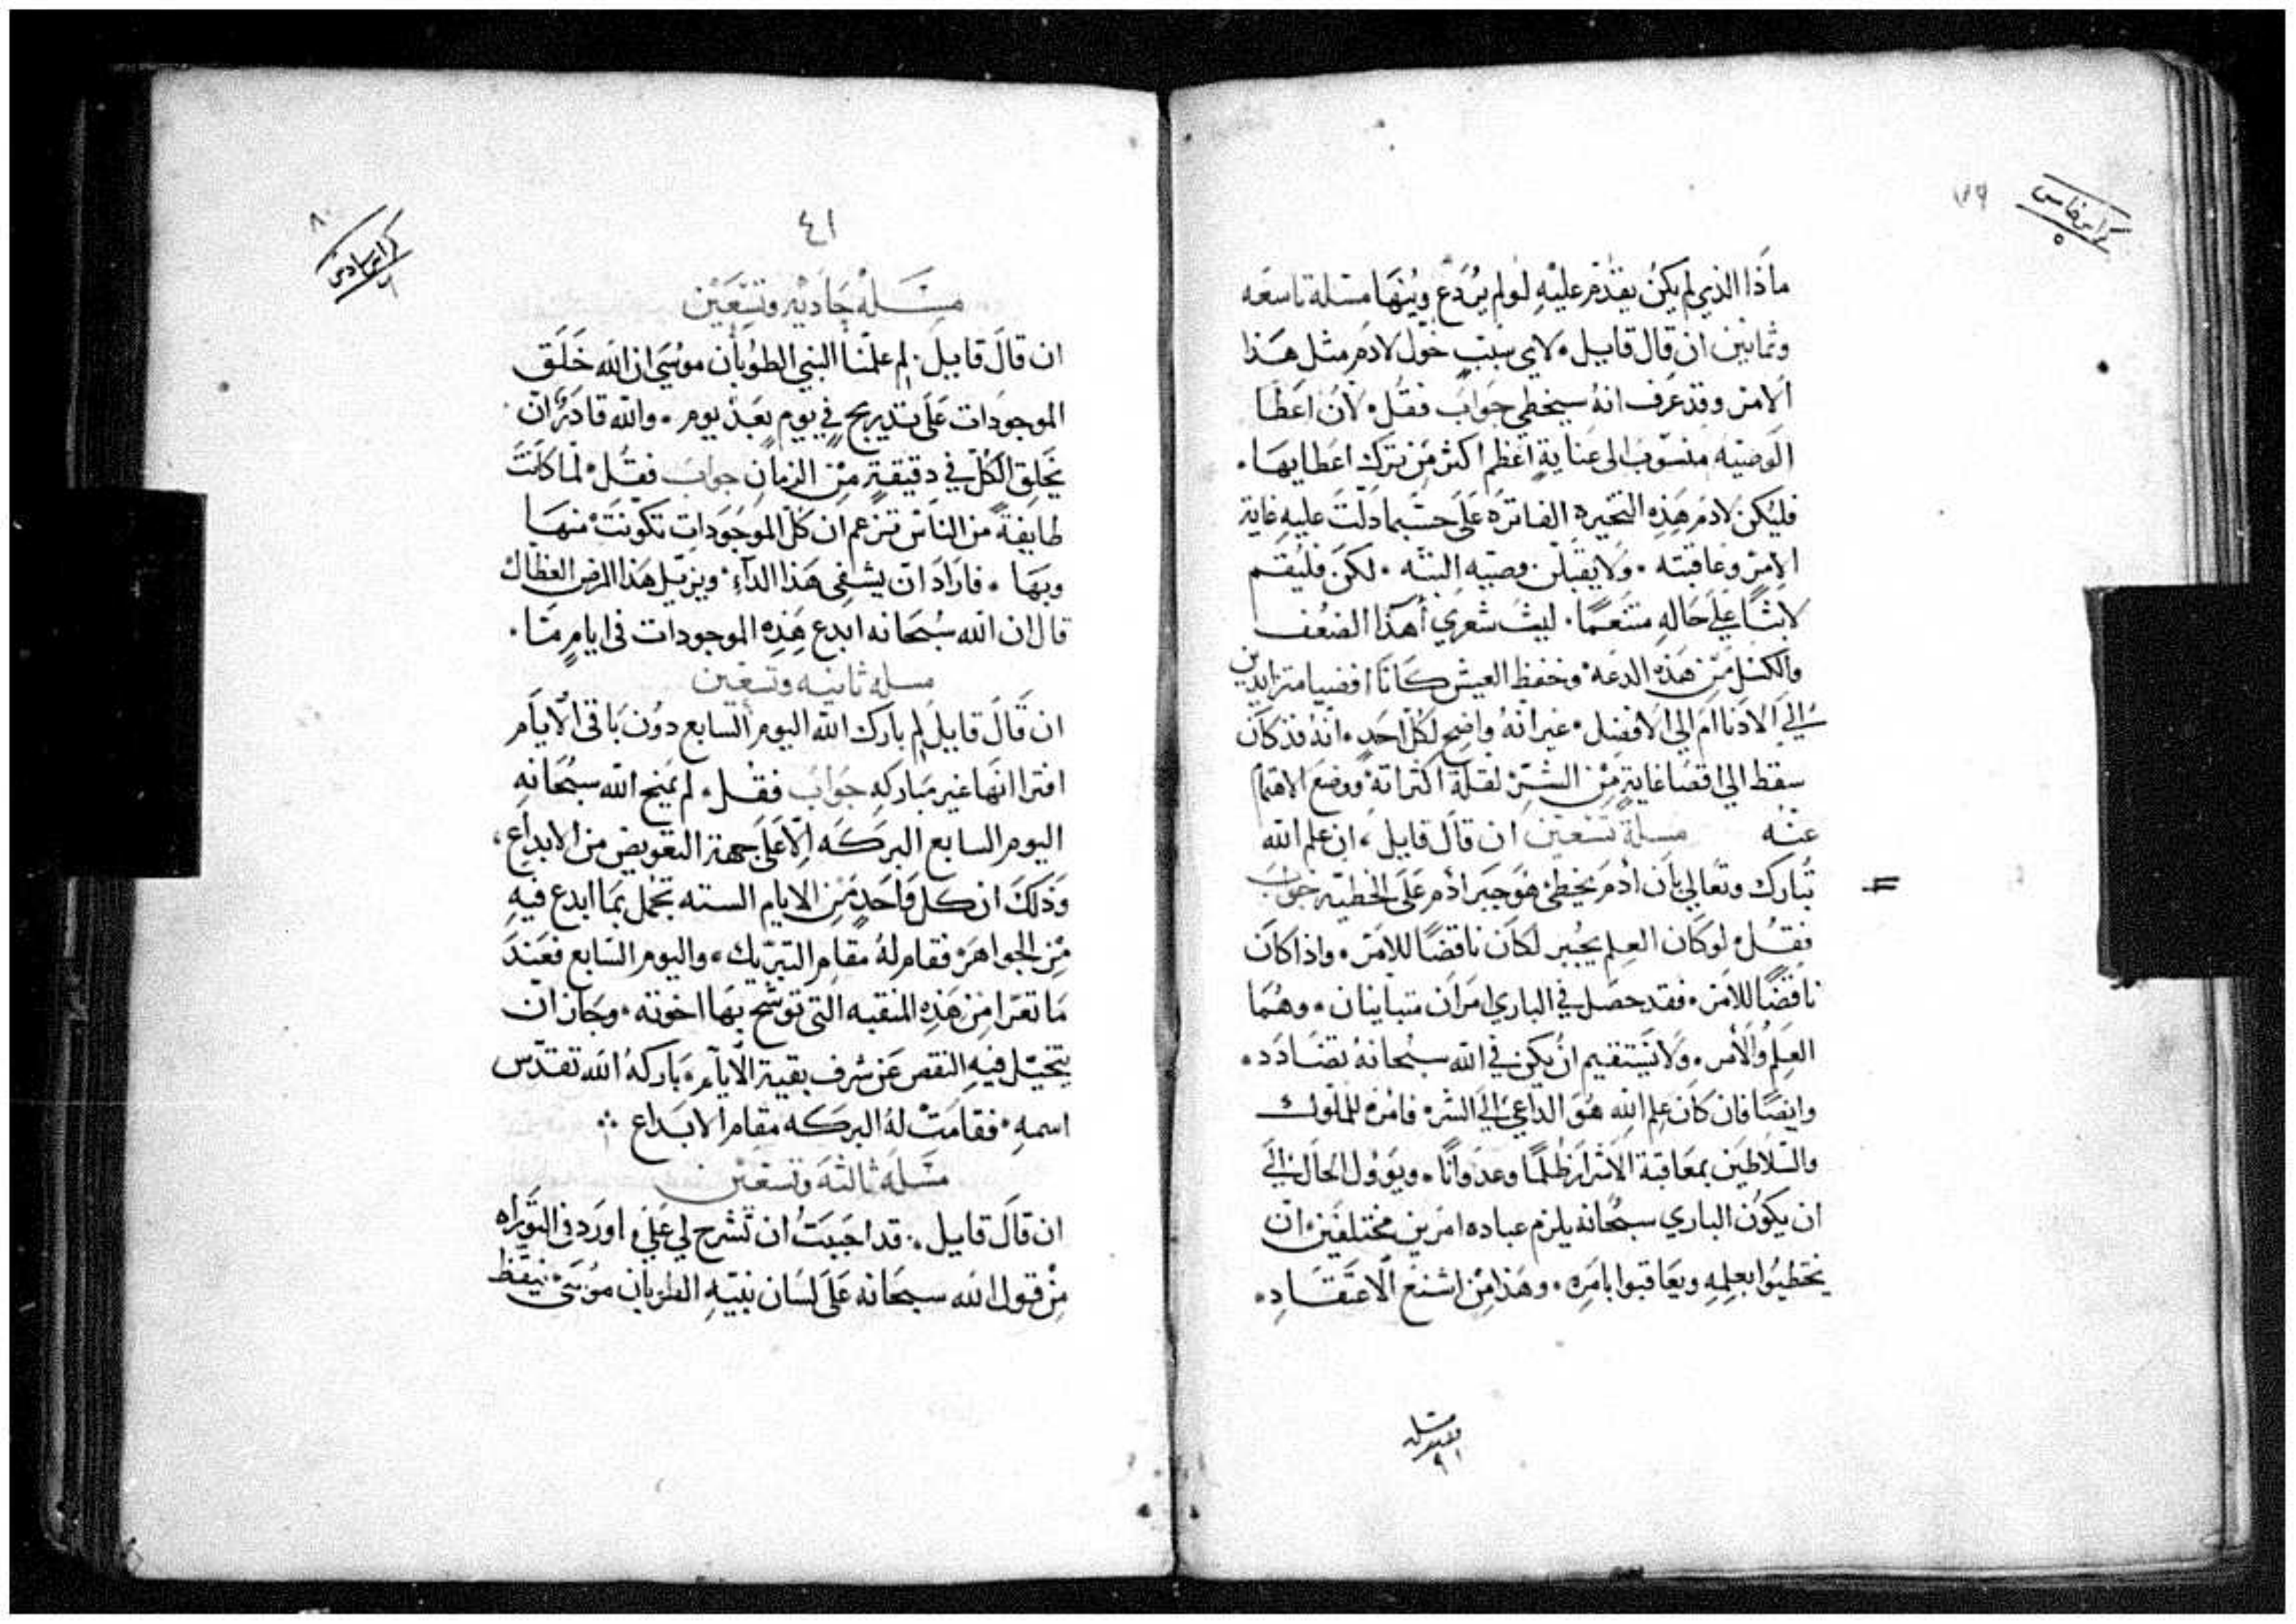 كراس خامس
٥
ماذا الذي لم يكن يقدم عليه لو لم يردع وينها مسلة تاسعه
وثمانين ان قال قايل لاي سبب خول لادم مثل هذا
الامر وقد عرف انه سيخطي جواب فقل لان اعطا
الوصيه منسوب الى عناية اعظم اكثر من ترك اعطايها.
فليكن لادم هذه التخيره الفاتره على حسبما دلت عليه غاية
الامر وعاقبته. ولا يقبلن وصيه البته. لكن فليقم
لابثا على حاله متنعما. ليث شعري أهذا الضعف
والكسل من هذه الدعه وخفظ العيش كانا افضيا متزايدين
الي الادنا ام الي الافضل غير انه واضح لكل احد انه قد كان
سقط الي اقصا غاية من الشر لقلة اكتراته ووضع الاهتمام
عنه مسلة تسعين ان قال قايل، ان علم الله
تبارك وتعالي بان ادم يخطئ هو جبر ادم على الخطيه جواب
فقل لو كان العلم يجبر لكان ناقضا للامر. واذا كان
ناقضا للامر. فقد حصل في الباري امران متباينان. وهما
العلم والأمر. ولا يستقيم ان يكن في الله سبحانه تضادد.
وايضا فان كان علم الله هو الداعي الي الشر فامره للملوك
والسلاطين بمعاقبة الاشرار ظلما وعدوانا. ويوول الحال الي
ان يكون الباري سبحانه يلزم عباده امرين مختلفين ان
يخطيوا بعلمه ويعاقبوا بامره. وهذا من اشنع الاعتقاد.
٩١
٨٠
كراس سادس
٦
٤١
مسلة حادية وتسعين
ان قال قايل. لم علمنا النبي الطوبان موسى ان الله خلق
الموجودات على تدريج في يوم بعد يوم. والله قادر ان
يخلق الكل في دقيقة من الزمان جواب فقل لما كانت
طايفة من الناس تزعم ان كل الموجودات تكونت منها
وبها. فاراد ان يشفى هذا الداء ويزيل هذا المرض العظال
قال ان الله سبحانه ابدع هذه الموجودات في ايام ما.
مسله ثانيه وتسعين
ان قال قايل لم بارك الله اليوم السابع دون باقي الايام
افترا انها غير مباركه جواب فقل. لم يمنح الله سبحانه
اليوم السابع البركه الا على جهة التعويض من الابداع،
وذلك ان كل واحد من الايام السته تجمل بما ابدع فيه
من الجواهر فقام له مقام التبريك. واليوم السابع فعند
ما تعرا من هذه المنقبه التي توشح بها اخوته. وجاز ان
يتخيل فيه النقص عن شرف بقية الايام. باركه الله تقدس
اسمه. فقامت له البركه مقام الابداع
مسلة ثالثة وتسعين
ان قال قايل. قد احببت ان تشرح لي علي ما ورد في التوراه
من قول الله سبحانه على لسان نبيه الطوبان موسى